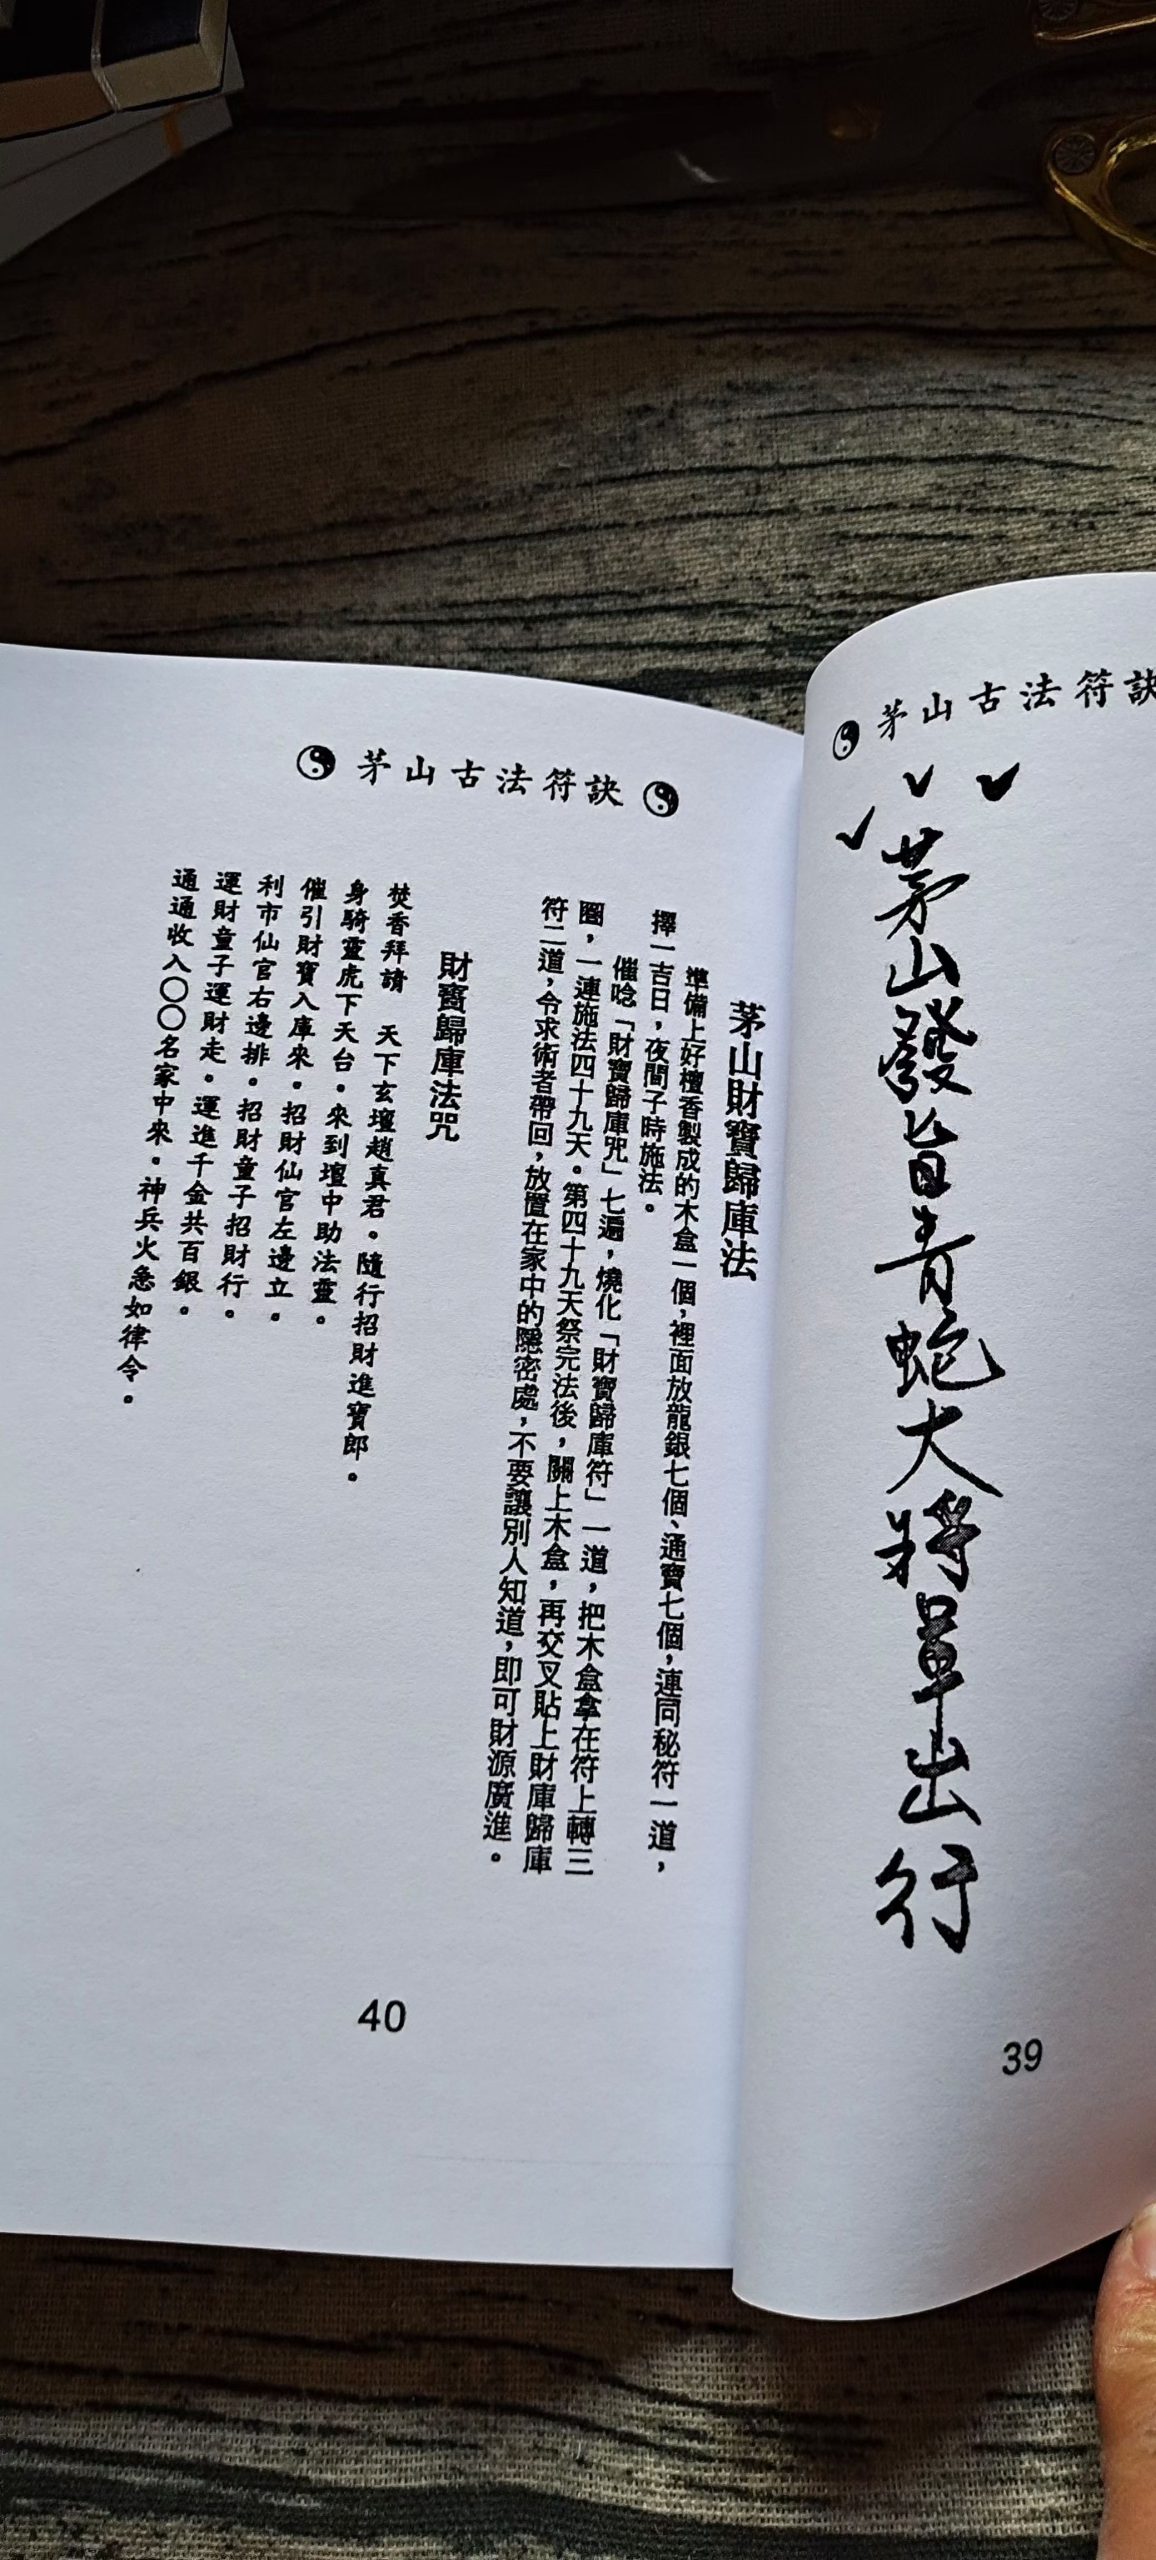 茅山古法符訣
茅山發旨青蛇大將軍出行
39
茅山古法符訣
茅山財寶歸庫法
準備上好檀香製成的木盒一個，裡面放龍銀七個、通寶七個，連同秘符一道，
擇一吉日，夜間子時施法。
催唸「財寶歸庫咒」七遍，燒化「財寶歸庫符」一道，把木盒拿在符上轉三
圈，一連施法四十九天。第四十九天祭完法後，關上木盒，再交叉貼上財庫歸庫
符二道，令求術者帶回，放置在家中的隱密處，不要讓別人知道，即可財源廣進。
財寶歸庫法咒
焚香拜請　天下玄壇趙真君。隨行招財進寶郎。
身騎靈虎下天台。來到壇中助法靈。
催引財寶入庫來。招財仙官左邊立。
利市仙官右邊排。招財童子招財行。
運財童子運財走。運進千金共百銀。
通通收入〇〇名家中來。神兵火急如律令。
40